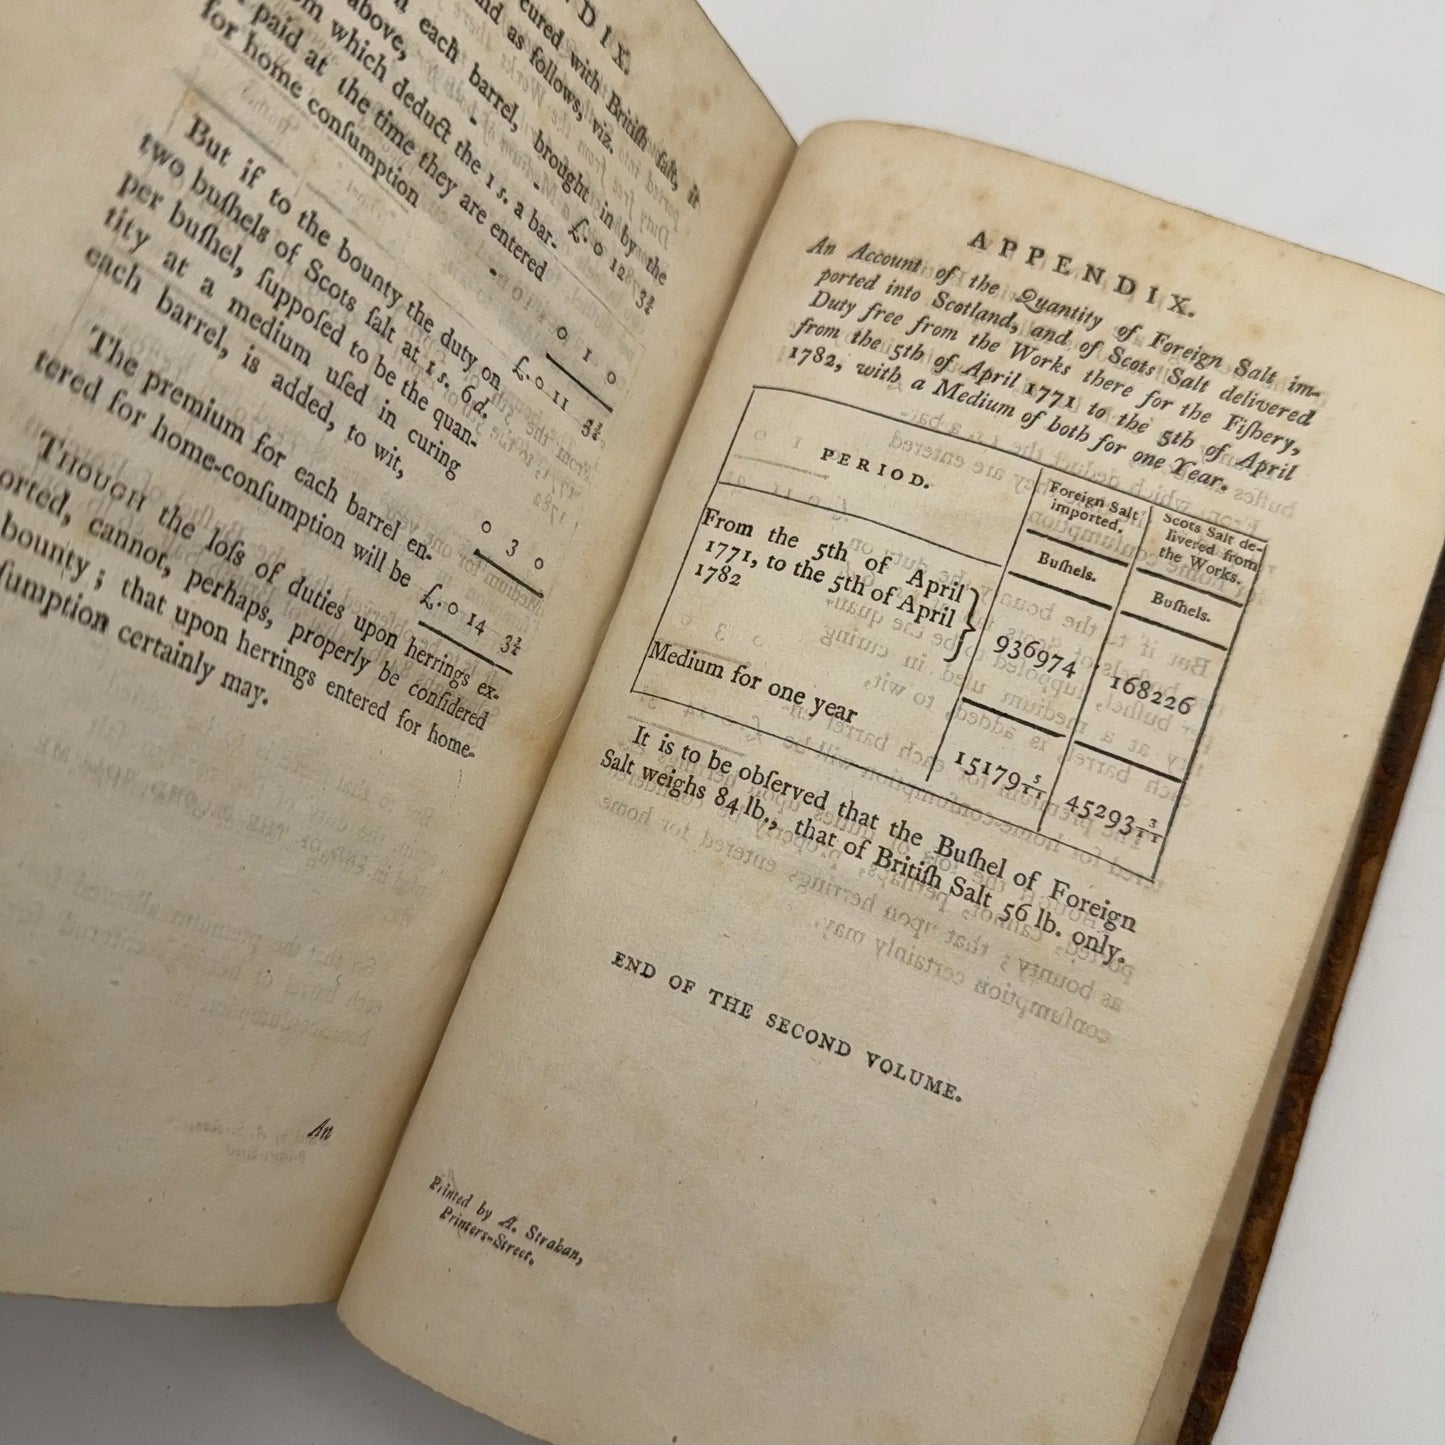 DIX.
cured with Britiſh ſalt, it
as follows, viz.
each barrel, brought in by the
above, - - £. 0 12 3¾
which deduct the 1 s. a bar-
paid at the time they are entered
for home conſumption - 0 1 0
£. 0 11 3¾
But if to the bounty the duty on
two buſhels of Scots ſalt at 1 s. 6 d.
per buſhel, ſuppoſed to be the quan-
tity at a medium uſed in curing
each barrel, is added, to wit, 0 3 0
The premium for each barrel en-
tered for home-conſumption will be £. 0 14 3¾
THOUGH the loſs of duties upon herrings ex-
orted, cannot, perhaps, properly be conſidered
bounty; that upon herrings entered for home-
ſumption certainly may.
An
APPENDIX.
An Account of the Quantity of Foreign Salt im-
ported into Scotland, and of Scots Salt delivered
Duty free from the Works there for the Fiſhery,
from the 5th of April 1771 to the 5th of April
1782, with a Medium of both for one Year.
PERIOD.
Foreign Salt
imported.
Scots Salt de-
livered from
the Works.
Buſhels.
Buſhels.
From the 5th of April
1771, to the 5th of April
1782
936974
168226
Medium for one year
15179 5/11
45293 3/11
It is to be obſerved that the Buſhel of Foreign
Salt weighs 84 lb., that of Britiſh Salt 56 lb. only.
END OF THE SECOND VOLUME.
Printed by A. Strahan,
Printers-Street.